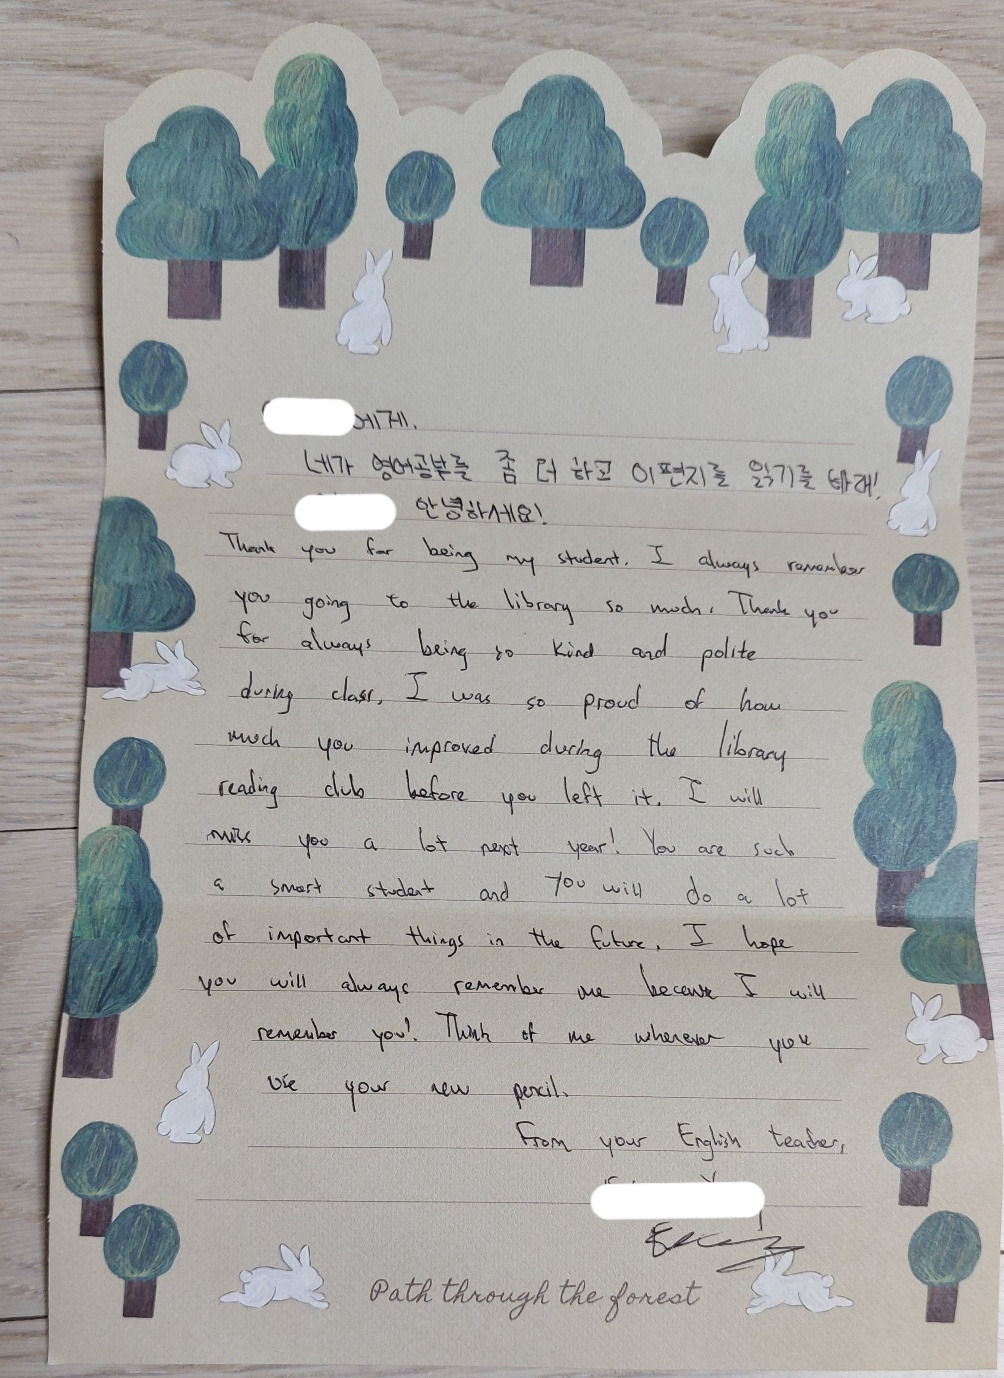 에게.
네가 영어공부를 좀 더 하고 이편지를 읽기를 바래!
안녕하세요!
Thank you for being my student. I always remember
you going to the library so much. Thank you
for always being so kind and polite
during class. I was so proud of how
much you improved during the library
reading club before you left it. I will
miss you a lot next year! You are such
a smart student and you will do a lot
of important things in the future. I hope
you will always remember me because I will
remember you! Think of me whenever you
use your new pencil.
From your English teacher,
Path through the forest